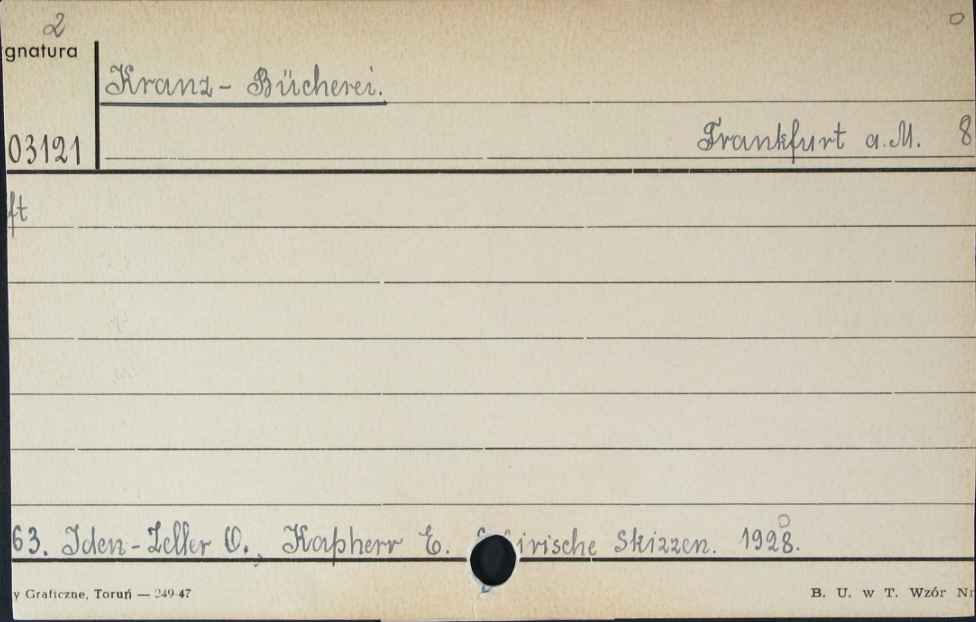 2
gnatura
Kranz-Bücherei.
03121
Frankfurt a.M. 8
ft
63. Iden-Zeller O., Kapherr E. irische Skizzen. 1928.
y Graficzne, Toruń — 249-47
B. U. w T. Wzór Nr